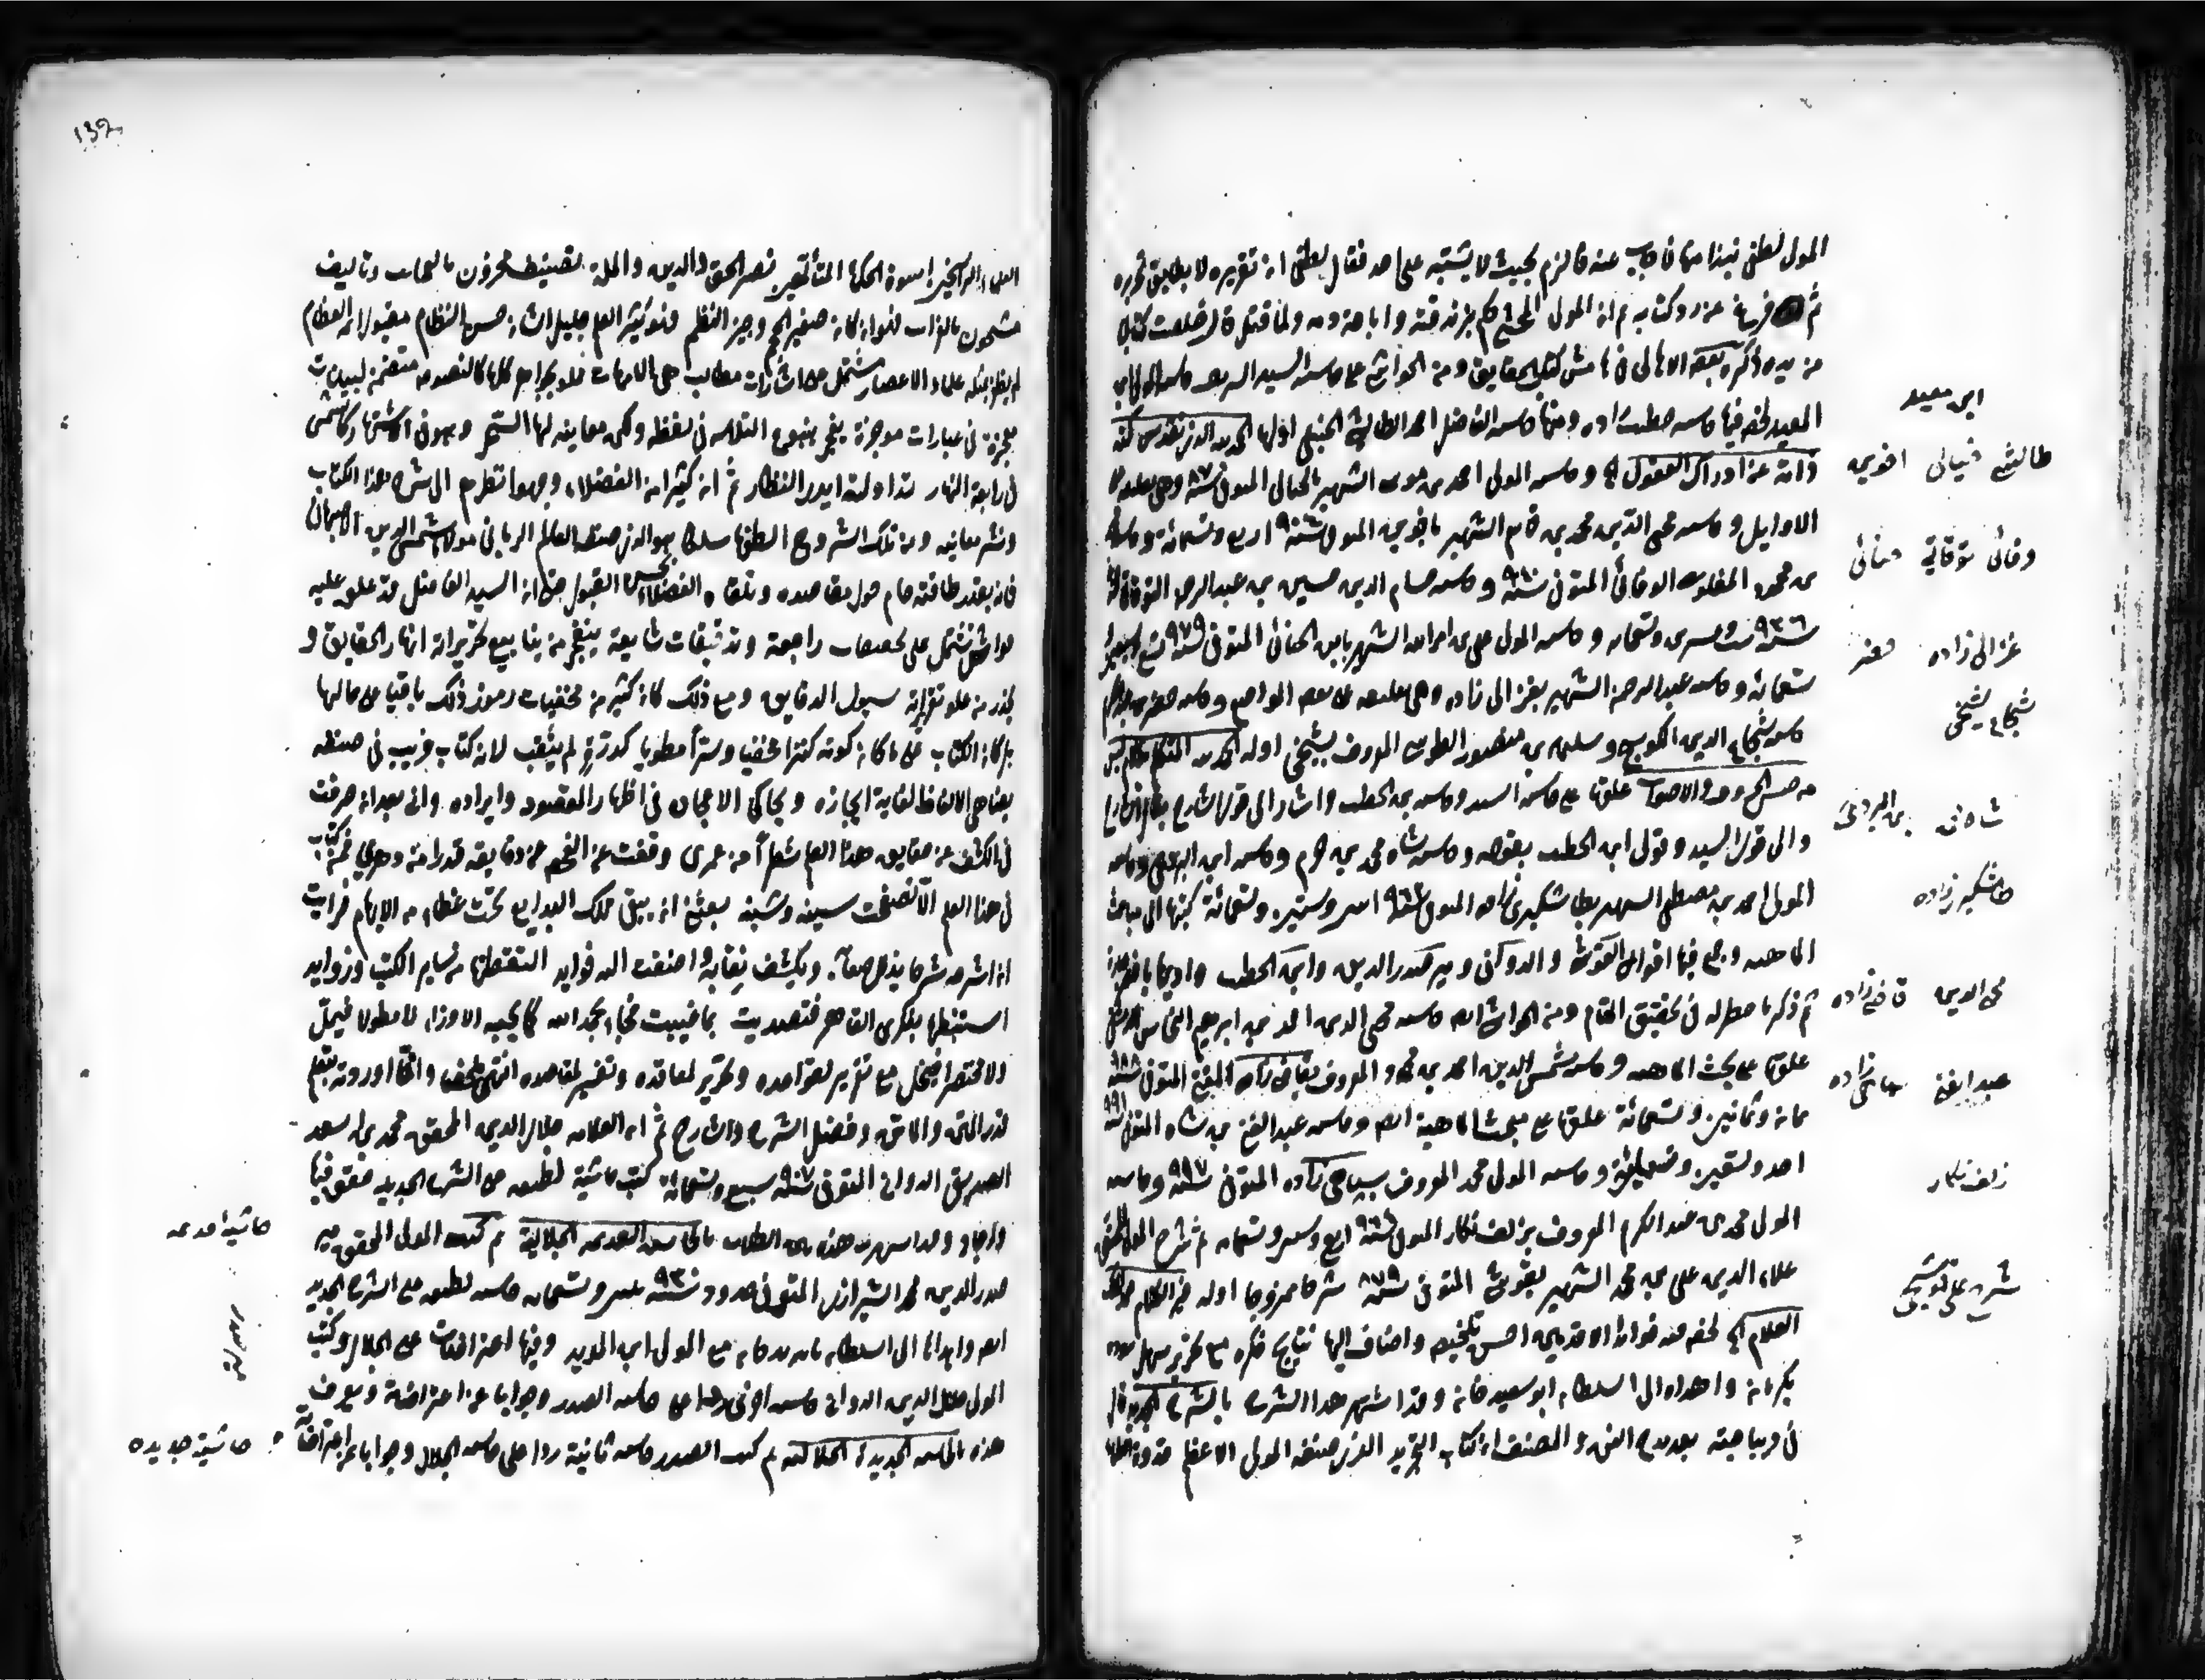 المولى لطفى نبذا منها فاجاب عنه فالزم بحيث لا يشتبه على احد فقال لطفى ان تقريره لا يطابق تحريره
ثم فرغ عن رد كتابه ثم ان المولى المحشى حكم بزندقته واباحة دمه ولما قتل قال خلصت كتابى
من يده ذكره بعض الاهالى فى هامش كتاب الشقايق ومن الحواشى على حاشية السيد الشريف حاشية المولى ابن
المعيد لخص فيها حاشية خطيب زاده ومنها حاشية الفاضل احمد الطالشى الجيلى اولها الحمد لله الذى تقدس كنه
ذاته عن ادراك العقول الخ وحاشية المولى احمد بن موسى الشهير بالخيالى المتوفى سنة ٨٧٠ وهى تعليقة على
الاوايل وحاشية محيى الدين محمد بن قاسم الشهير باخوين المتوفى سنة ٩٠٤ اربع وتسعمائة وحاشية
بن محمود المغلوى الوفائى المتوفى سنة ٩٤٠ وحاشية حسام الدين حسين بن عبد الرحمن التوقاتى المتوفى
سنة ٩٢٦ ست وعشرين وتسعمائة وحاشية المولى على بن امر الله الشهير بابن الحنائى المتوفى سنة ٩٧٩ تسع وسبعين
تسعمائة وحاشية عبد الرحمن الشهير بغزالى زاده وهى تعليقة على بعض المواضع وحاشية
حاشية شجاع الدين الكوسج وسليمان بن منصور الطوسى المعروف بشيخى اوله الحمد لله المتكلم بكلام ليس
من جنس الحروف والاصوات علقها على حاشية السيد وحاشية بن الخطيب واشار الى قول الشارح بقال الشارح
والى قول السيد وقول ابن الخطيب بقوله وحاشية شاه محمد بن حرم وحاشية ابن البردعى وحاشية
المولى احمد بن مصطفى الشهير بطاشكبرى زاده المتوفى سنة ٩٦٢ اثنين وستين وتسعمائة كتبها الى مباحث
الماهية وجمع فيها اقوال القوشى والدوانى ومير صدر الدين وابن الخطيب واداها باخصر عبارة
ثم ذكر ما خطر له فى تحقيق المقام ومن الحواشى ايضا حاشية محيى الدين احمد بن ابراهيم النحاس الدمشقى
علقها على بحث الماهية وحاشية شمس الدين احمد بن محمود المعروف بقاضى زاده المفتى المتوفى سنة ٩٨٨
ثمان وثمانين وتسعمائة علقها على مبحث الماهية ايضا وحاشية عبد الغنى بن شاه المتوفى سنة ٩٩١
احد وتسعين وتسعمائة وحاشية المولى محمد المعروف بسپاهى زاده المتوفى سنة ٩٩٧ وحاشية
المولى محمد بن عبد الكريم المعروف بزلف نكار المتوفى سنة ٩٦٤ اربع وستين وتسعمائة ثم شرح المولى المحقق
علاء الدين على بن محمد الشهير بقوشى المتوفى سنة ٨٧٩ شرحا ممزوجا اوله خير الكلام حمد الملك
العلام الخ لخص فيه فوائد الاقدمين احسن تلخيص واضاف اليها نتايج فكره مع تحرير سهل سوده
بكرمان واهداه الى السلطان ابو سعيد خان وقد اشتهر هذا الشرح بالشرح الجديد قال
فى ديباجته بعد مدح الفن والمصنف ان كتاب التجريد الذى صنفه المولى الاعظم قدوة العلماء
ابن معيد
طالشى خيالى اخوين
وفائى توقاتى حنائى
غزالى زاده جعفر
شجاع شيخى
شاه محمد بن البردعى
طاشكبرى زاده
محى الدين قاضى زاده
عبد الغنى سپاهى زاده
زلف نكار
شرح على قوشجى
132
العلماء الراسخين اسوة الحكماء المتألهين نصير الحق والدين والملة تصنيف مخزون بالعجائب وتاليف
مشحون بالغرايب فهو وان كان صغير الحجم وجيز النظم فهو كثير العلم جليل الشان حسن النظام مقبول الائمة العظام
لم يظفر بمثله علماء الاعصار مشتمل على اشارات مطالب هى الامهات مملو بجواهر كلها كالفصوص متضمن لبيانات
معجزة فى عبارات موجزة يفجر ينبوع السلاسة فى لفظه ولكن معانيه لها السحر وهو فى الاشتهار كالشمس
فى رابعة النهار تداولته ايدى النظار ثم ان كثيرا من الفضلاء وجهوا نظرهم الى شرح هذا الكتاب
ونشر معانيه ومن تلك الشروح الطفها مسلكا هو الذى صنفه العالم الربانى مولانا شمس الدين الاصبهانى
فانه بقدر طاقته حام حول مقاصده وتلقاه الفضلاء بحسن القبول حتى ان السيد الفاضل قد علق عليه
حواشى تشتمل على تحقيقات رايقة وتدقيقات شايعة ينفجر من ينابيع تحريراته انهار الحقايق و
ينحدر من علو تقريراته سيول الدقايق ومع ذلك كان كثير من مخفيات رموز ذلك باقيا على حالها
بل كان الكتاب على ما كان كونه كنزا مخفيا وسرا مطويا كدرة لم يثقب لانه كتاب غريب فى صنعته
يضاهى الالغاز لغاية ايجازه ويحاكى الاعجاز فى اظهار المقصود وايراده وانى بعد ان صرفت
فى الكشف عن حقايق هذا العلم شطرا من عمرى ووقفت على الفحص عن دقايقه قدرا من دهرى فما من كتاب
فى هذا العلم الا تصفحت سينه وشينه بعثنى ان يبقى تلك البدايع تحت غطاء من الابهام فرايت
ان اشرحه شرحا يذلل صعابه ويكشف نقابه واضفت اليه فوايد التقطتها من ساير الكتب وزوايد
استنبطها بفكرى القاصر فتصديت بما عنيت فجاء بحمد الله كما يحبه الاوداء لا مطولا فيمل
ولا مختصرا فيخل مع تقرير لقواعده وتحرير لمعاقده وتفسير لمقاصده انتهى ملخصا وانما اوردته ليعلم
قدر المتن والماتن وفضل الشرح والشارح ثم ان العلامة جلال الدين المحقق محمد بن اسعد
الصديقى الدوانى المتوفى سنة ٩٠٧ سبع وتسعمائة كتب حاشية لطيفة على الشرح الجديد حقق فيها
واجاد وقد اشتهر هذه بين الطلاب بالحاشية القديمة الجلالية ثم كتب المولى المحقق مير
صدر الدين محمد الشيرازى المتوفى فى حدود سنة ٩٣٠ ثلثين وتسعمائة حاشية لطيفة على الشرح الجديد
ايضا واهداها الى السلطان بايزيد خان مع المولى ابن المؤيد وفيها اعتراضات على الجلال وكتب
المولى جلال الدين الدوانى حاشية اخرى ردا على حاشية الصدر وجوابا عن اعتراضاته وتعرف
هذه بالحاشية الجديدة الجلالية ثم كتب الصدر حاشية ثانية ردا على حاشية الجلال وجوابا عن اعتراضاته
حاشية قديمه
حاشية جديده